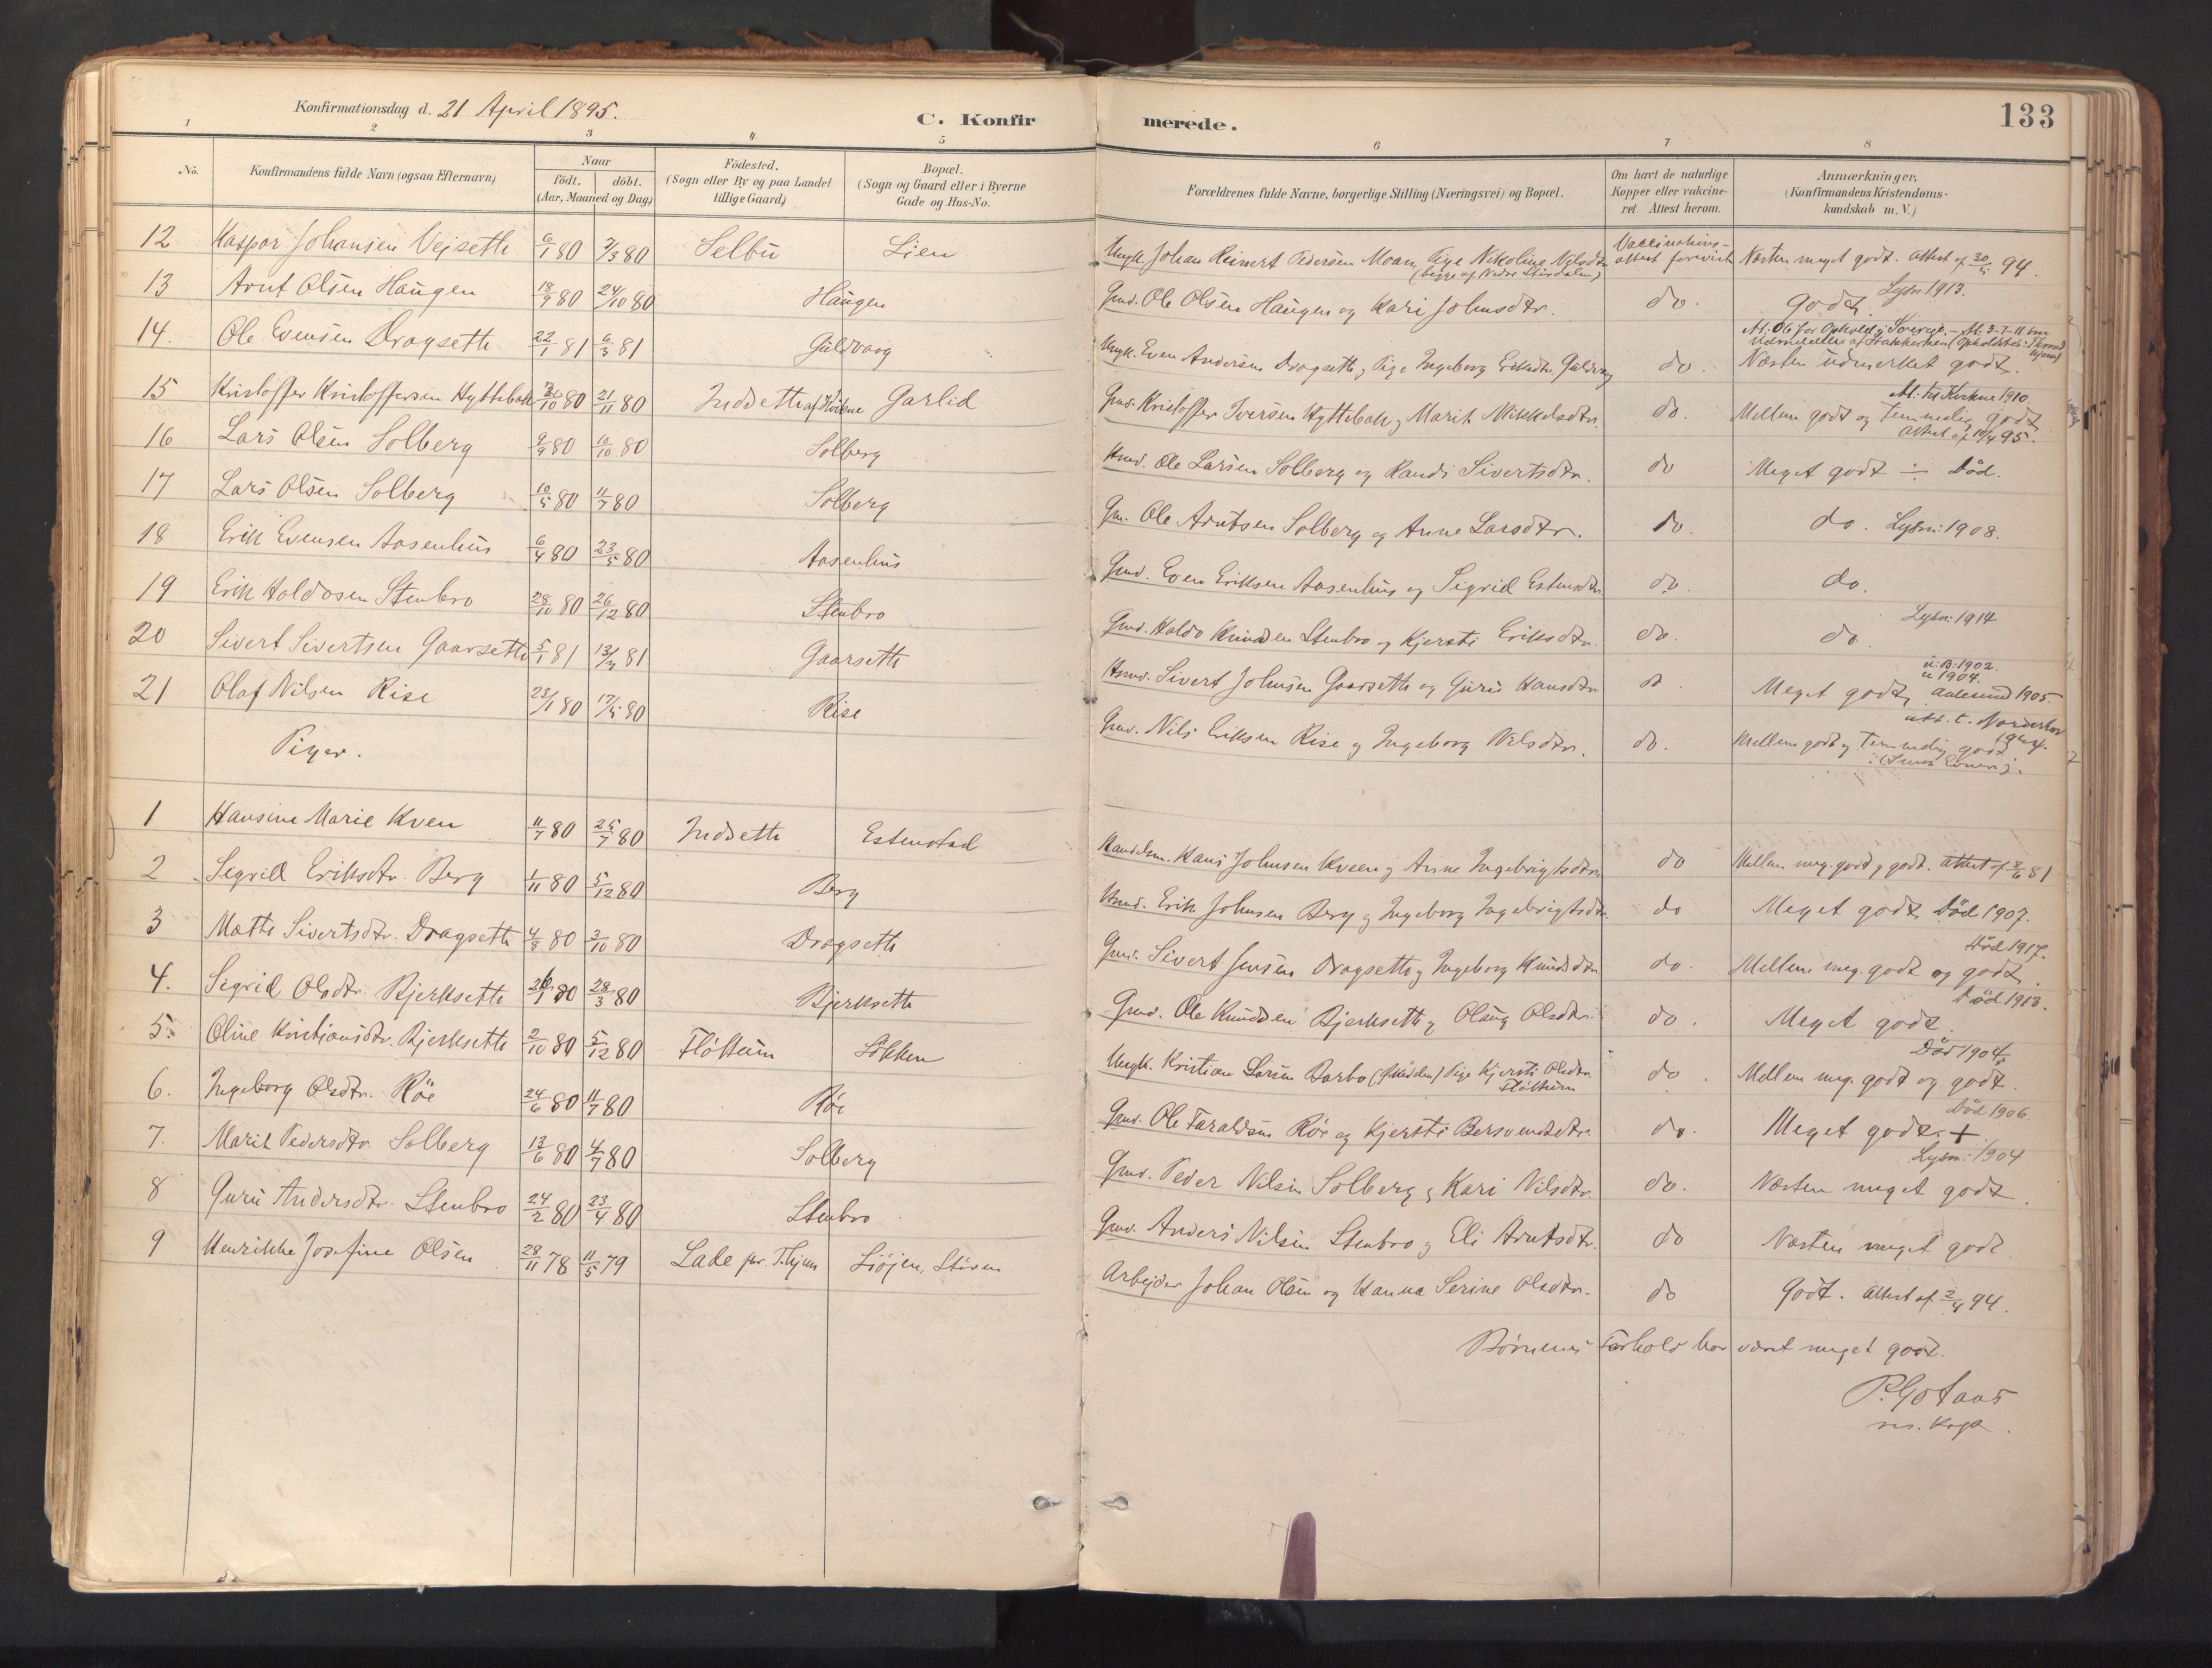 Konfirmationsdag d. 21 April 1895.
C. Konfirmerede.
133
1 2 3 4 5 6 7 8
No.
Konfirmandens fulde Navn (ogsaa Efternavn)
Naar
födt. döbt.
(Aar, Maaned og Dag)
Födested.
(Sogn eller By og paa Landet
tillige Gaard)
Bopæl.
(Sogn og Gaard eller i Byerne
Gade og Hus-No.
Forældrenes fulde Navne, borgerlige Stilling (Næringsvei) og Bopæl.
Om havt de naturlige
Kopper eller vakcine-
ret. Attest herom.
Anmærkninger,
(Konfirmandens Kristendoms-
kundskab m. V.)
12 Kaspar Johansen Vejseth 6/1 80 7/3 80 Selbu Lien Ungk. Johan Reinert Pedersen Moan, Pige Nikoline Nilsdtr. (begge af Nedre Stördalen) Vaccinations-attest forevist Næsten meget godt. Attest af 94.
13 Arnt Olsen Haugen 18/9 80 24/10 80 Haugen Gmd. Ole Olsen Haugen og Kari Johnsdtr. do. Godt. Lysn. 1913.
14. Ole Evensen Dragseth 22/1 81 6/3 81 Guldvaag Ungk. Even Andersen Dragseth, Pige Ingeborg Eriksdtr. Guldvaag do. Næsten udmerket godt.
15 Kristoffer Kristoffersen Hyttebak 80 21/11 80 Indseth af Kvikne Garlid Gmd. Kristoffer Iversen Hyttebak og Marit Mikkelsdtr. do. Mellem godt og temmelig godt Att. til Kvikne 1910. Attest af 10/4 95.
16 Lars Olsen Solberg 9/9 80 10/10 80 Solberg Hmd. Ole Larsen Solberg og Randi Sivertsdtr. do Meget godt ÷ Död.
17 Lars Olsen Solberg 10/5 80 11/7 80 Solberg Gm. Ole Arntsen Solberg og Anne Larsdtr. do. do. Lysn: 1908.
18 Erik Evensen Aasenhus 6/4 80 23/5 80 Aasenhus Gmd. Even Eriksen Aasenhus og Sigrid Estensdtr do. do.
19 Erik Haldosen Stenbro 28/10 80 26/12 80 Stenbro Gmd. Haldo Knudsen Stenbro og Kjersti Eriksdtr. do. do. Lysn: 1914
20 Sivert Sivertsen Gaarseth 5/1 81 13/3 81 Gaarseth Hmd. Sivert Johnsen Gaarseth og Guru Hansdtr do. Meget godt, u. B. 1902. u 1904. Aalesund 1905.
21 Olaf Nilsen Rise 23/1 80 17/5 80 Rise Gmd. Nils Eriksen Rise og Ingeborg Nilsdtr. do. Mellem godt og temmelig godt att. t. Norderhov
Piger.
1 Hansine Marie Kven 11/7 80 25/7 80 Indseth Estenstad Handelsm. Hans Johnsen Kveen og Anne Ingebrigtsdtr. do Mellem meg. godt og godt. Attest af 81
2 Sigrid Eriksdtr. Berg 1/11 80 5/12 80 Berg Hmd. Erik Johnsen Berg og Ingeborg Ingebrigtsdtr. do Meget godt. Död 1907.
3 Mette Sivertsdtr. Dragseth 4/8 80 3/10 80 Dragseth Gmd. Sivert Jensen Dragseth og Ingeborg Knudsdtr do. Mellem meg. godt og godt. Död 1917.
4. Sigrid Olsdtr. Bjerkseth 26/1 80 28/3 80 Bjerkseth Gmd. Ole Knudsen Bjerkseth og Olaug Olsdtr. do. Meget godt. Död 1913.
5. Oline Kristiansdtr. Bjerkseth 2/10 80 5/12 80 Flöttum Lökken Ungk. Kristian Larsen Barbo Pige Kjersti Olsdtr. Flöttum do. Mellem meg. godt og godt. Död 1904.
6. Ingeborg Olsdtr. Röe 24/6 80 11/7 80 Röe Gmd. Ole Taraldsen Röe og Kjersti Bersvendsdtr. do. Meget godt. + Död 1906.
7. Marit Pedersdtr. Solberg 13/6 80 4/7 80 Solberg Gmd. Peder Nilsen Solberg og Kari Nilsdtr. do. Næsten meget godt. Lysn: 1904
8 Guru Andersdtr. Stenbro 24/2 80 23/4 80 Stenbro Gmd. Anders Nilsen Stenbro og Eli Arntsdtr. do Næsten meget godt
9 Henrikke Josefine Olsen 28/11 78 11/5 79 Lade pr. T.hjem Sjöjen, Stören Arbejder Johan Olsen og Hanna Serine Olsdtr. do Godt. Attest af 94.
Börnenes Forhold har været meget godt.
P. Gotaas
res. Kap.